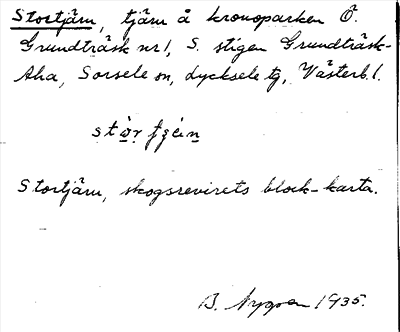 Stortjärn, tjärn å kronoparken Ö.
Grundträsk nr 1, S. stigen Grundträsk-
Aha, Sorsele sn, Lycksele tg, Västerb. l.
Stortjärn, skogsrevirets block-karta.
B. Nygren 1935.